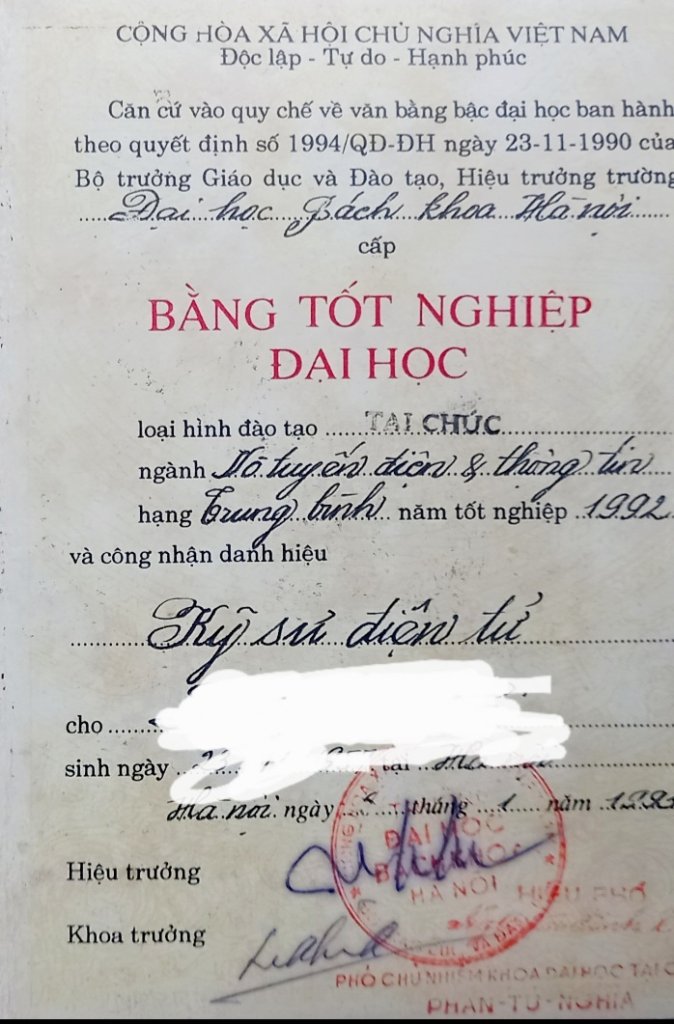 CỘNG HÒA XÃ HỘI CHỦ NGHĨA VIỆT NAM
Độc lập - Tự do - Hạnh phúc
Căn cứ vào quy chế về văn bằng bậc đại học ban hành
theo quyết định số 1994/QĐ-ĐH ngày 23-11-1990 của
Bộ trưởng Giáo dục và Đào tạo, Hiệu trưởng trường
Đại học Bách khoa Hà nội
cấp
BẰNG TỐT NGHIỆP
ĐẠI HỌC
loại hình đào tạo TẠI CHỨC
ngành Vô tuyến điện & thông tin
hạng Trung bình năm tốt nghiệp 1992
và công nhận danh hiệu
Kỹ sư điện tử
cho
sinh ngày tại
Hà nội ngày tháng 1 năm
Hiệu trưởng
ĐẠI HỌC
BÁCH KHOA
HÀ NỘI
HIỆU PHÓ
Khoa trưởng
PHÓ CHỦ NHIỆM KHOA ĐẠI HỌC TẠI
PHAN-TỨ-NGHĨA